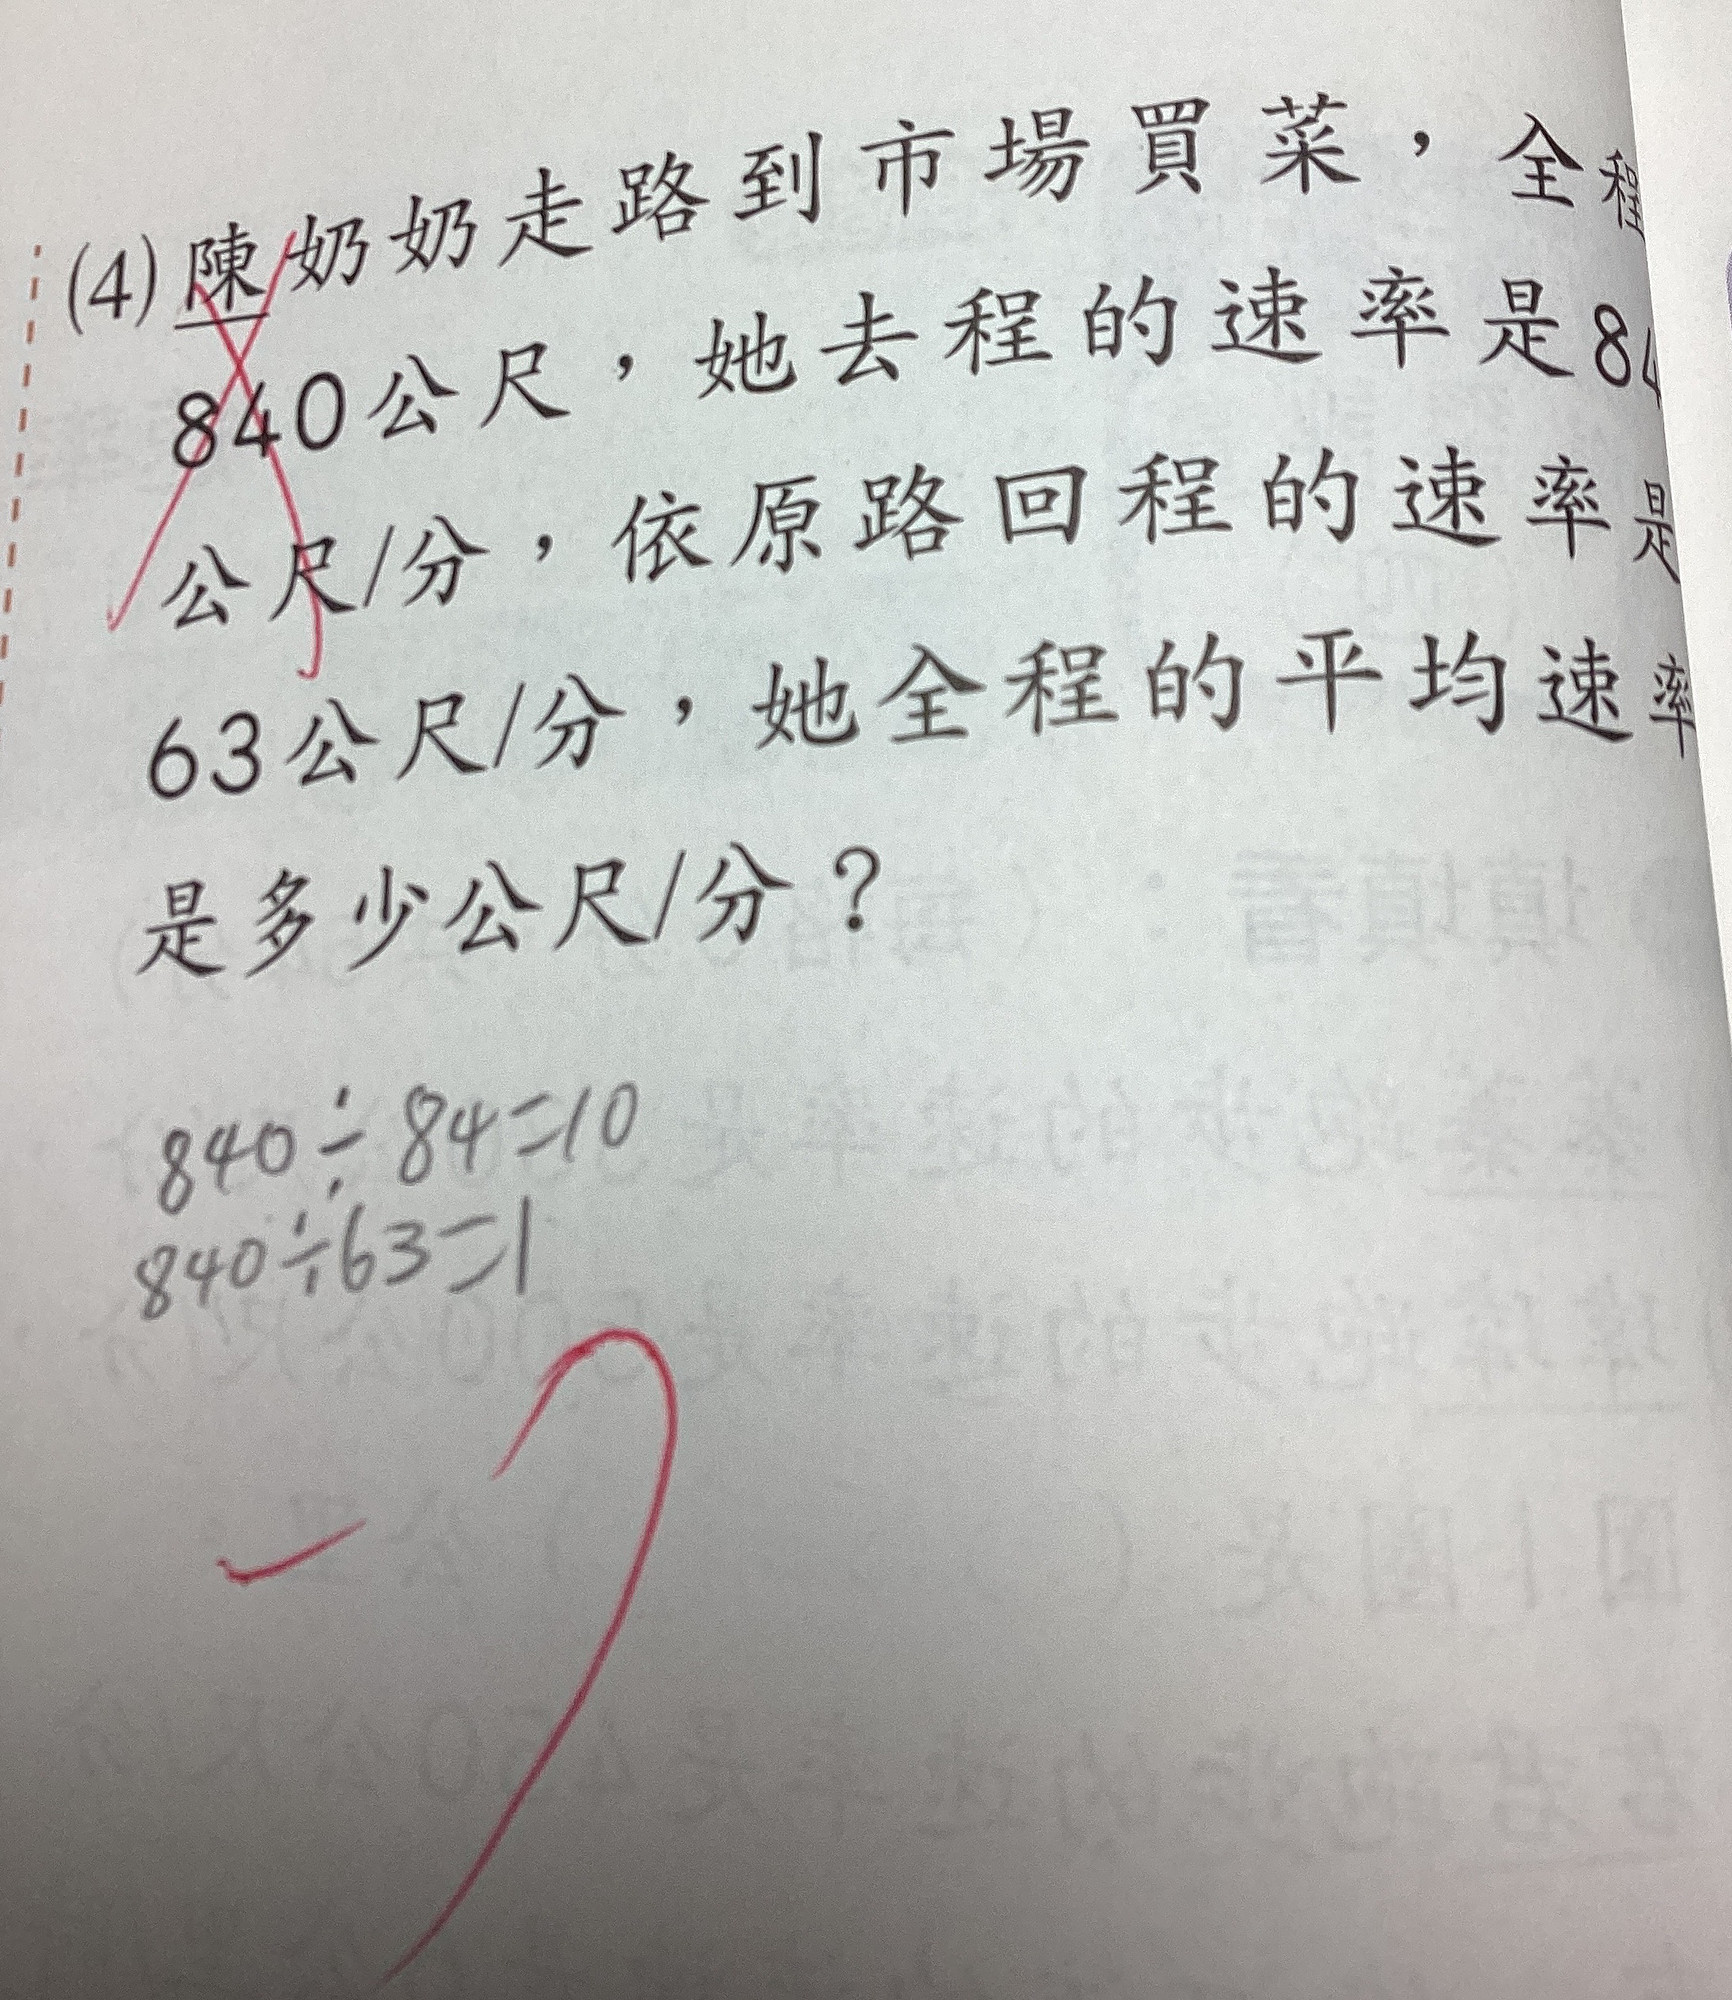 (4)陳奶奶走路到市場買菜，全程
840公尺，她去程的速率是84
公尺/分，依原路回程的速率是
63公尺/分，她全程的平均速率
是多少公尺/分？
840÷84=10
840÷63=1